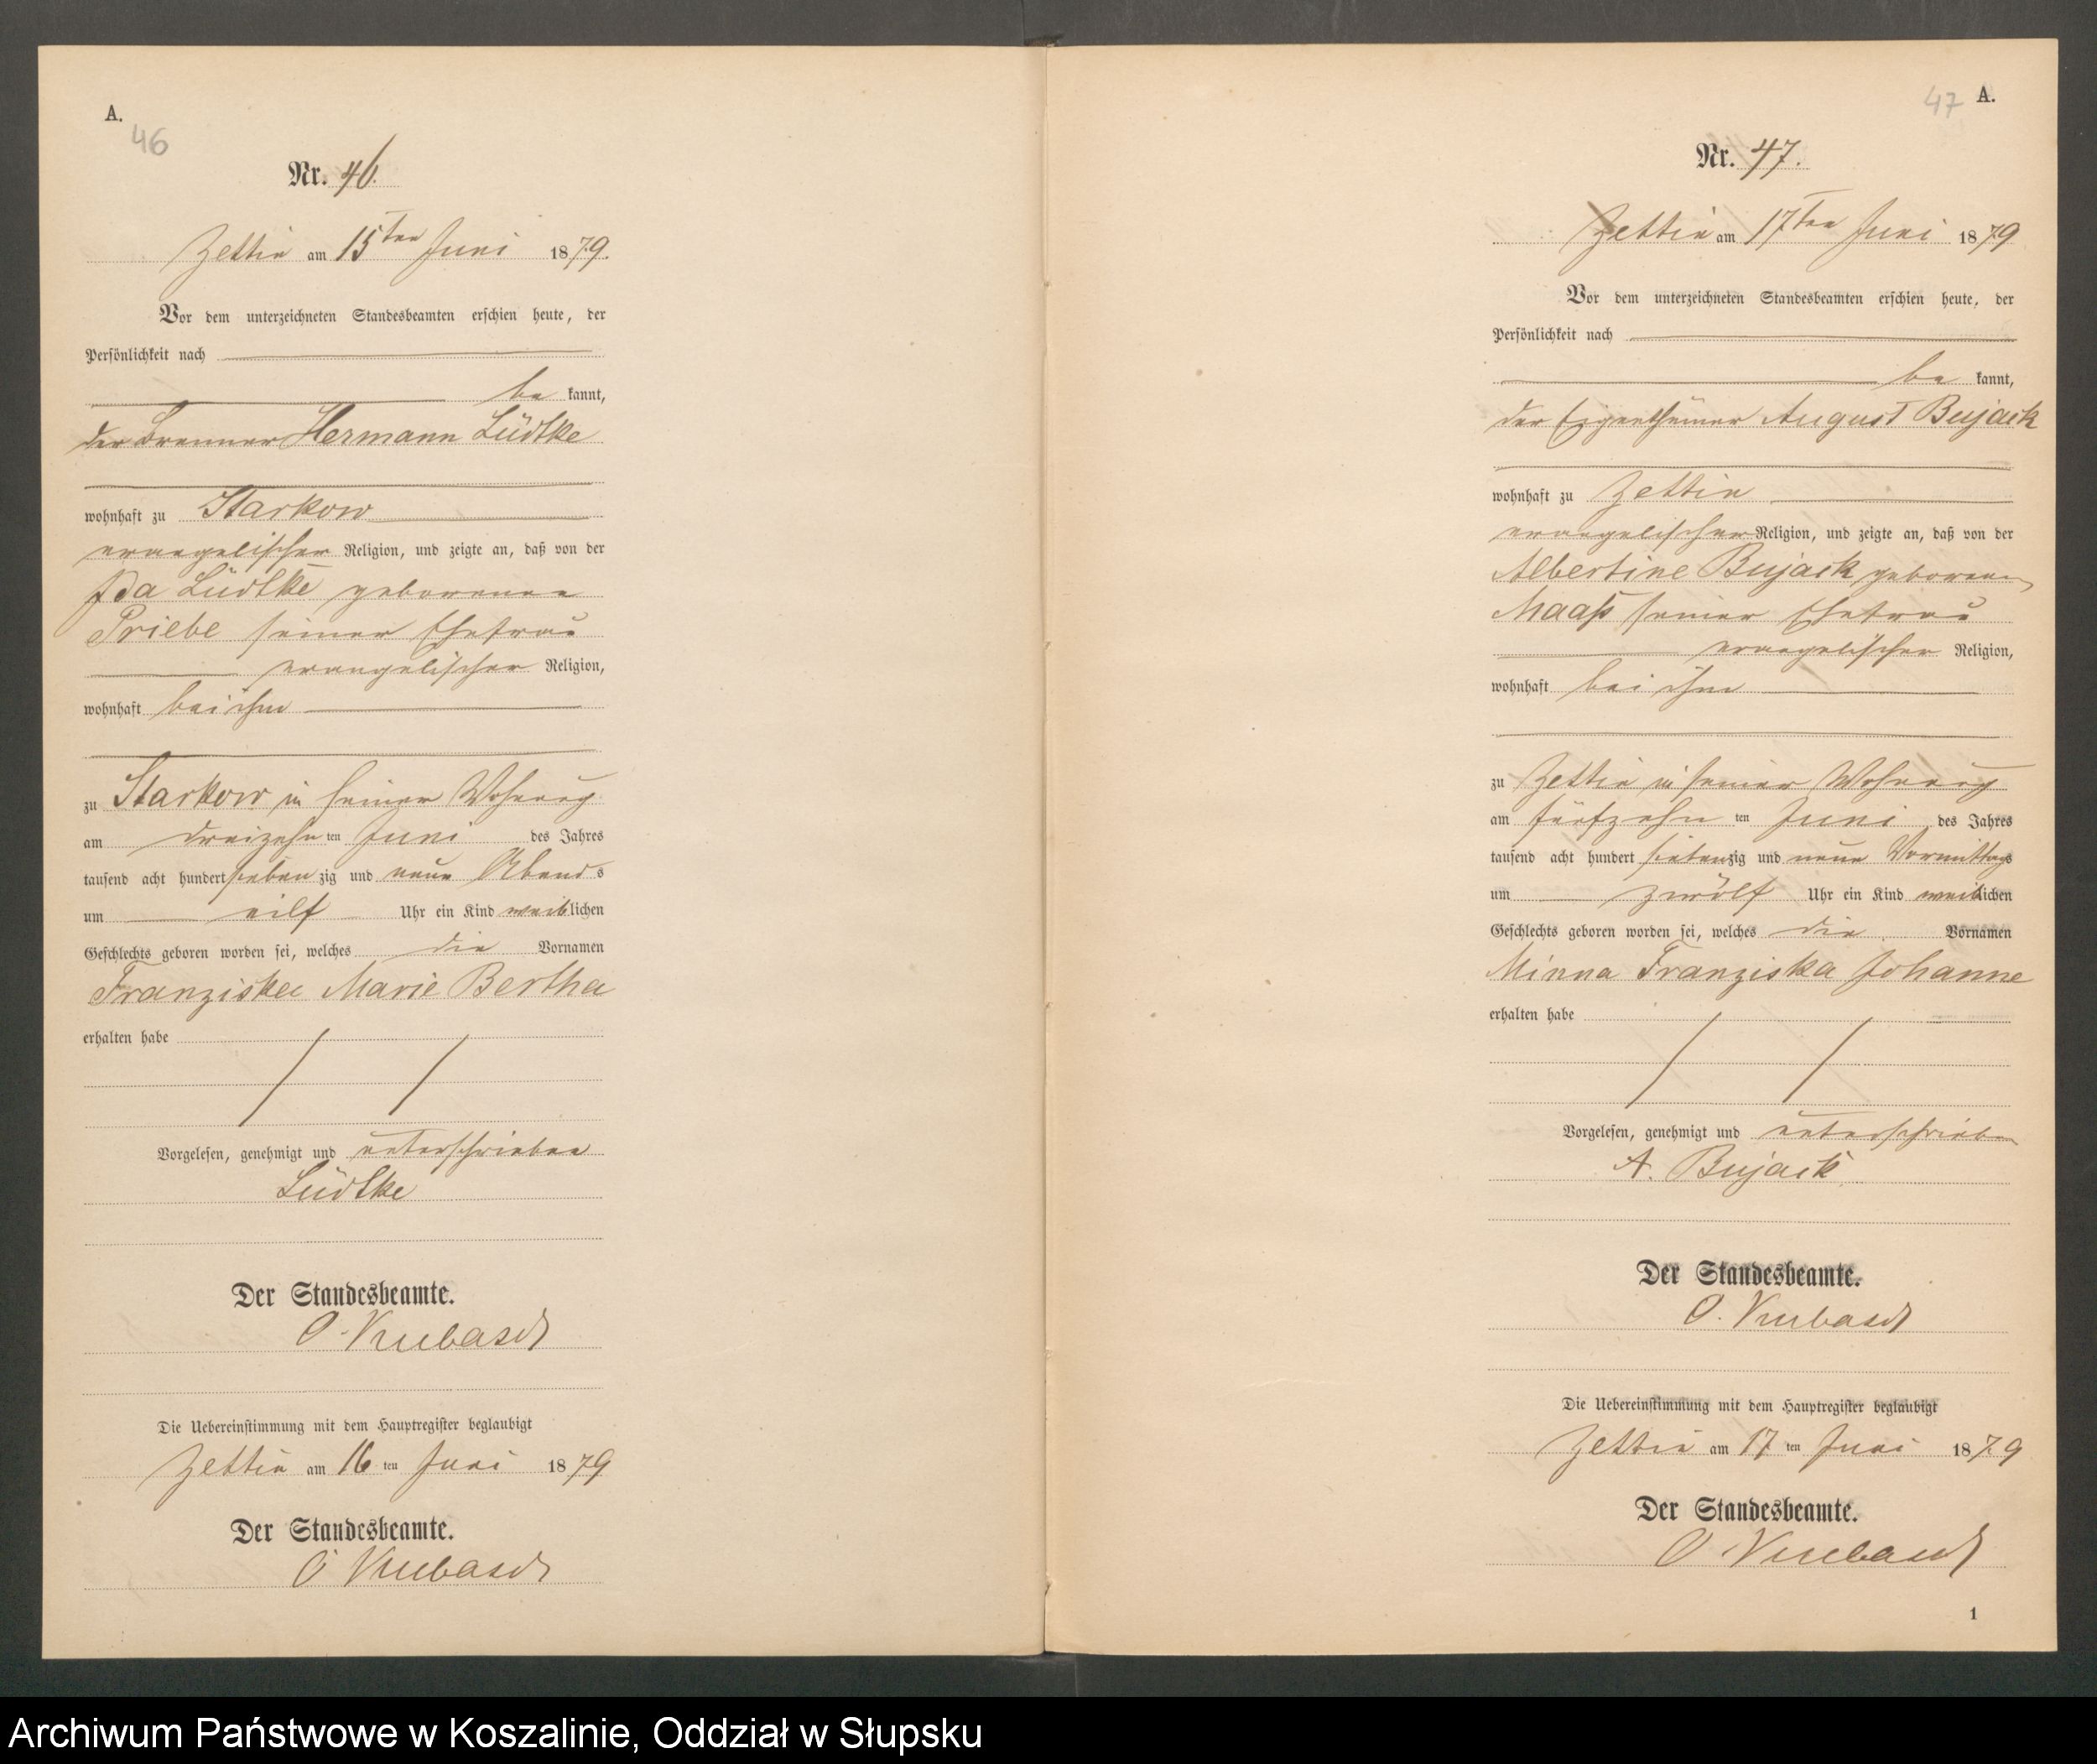 A.
46
Nr. 46.
Zettin am 15ten Juni 1879.
Vor dem unterzeichneten Standesbeamten erschien heute, der
Persönlichkeit nach
be kannt,
der Brenner Hermann Lüdtke
wohnhaft zu Starkow
evangelischer Religion, und zeigte an, daß von der
Ida Lüdtke geborenen
Priebe seiner Ehefrau
evangelischer Religion,
wohnhaft bei ihm
zu Starkow in seiner Wohnung
am dreizehn ten Juni des Jahres
tausend acht hundert sieben zig und neun Abends
um eilf Uhr ein Kind weiblichen
Geschlechts geboren worden sei, welches die Vornamen
Franziska Marie Bertha
erhalten habe
Vorgelesen, genehmigt und unterschrieben
Lüdtke
Der Standesbeamte.
O. Kubasch
Die Uebereinstimmung mit dem Hauptregister beglaubigt
Zettin am 16 ten Juni 1879
Der Standesbeamte.
O Kubasch
47 A.
Nr. 47.
Zettin am 17ten Juni 1879
Vor dem unterzeichneten Standesbeamten erschien heute, der
Persönlichkeit nach
be kannt,
der Eigenthümer August Bujack
wohnhaft zu Zettin
evangelischer Religion, und zeigte an, daß von der
Albertine Bujack geborenen
Maaß seiner Ehefrau
evangelischer Religion,
wohnhaft bei ihm
zu Zettin in seiner Wohnung
am fünfzehn ten Juni des Jahres
tausend acht hundert siebenzig und neun Vormittags
um zwölf Uhr ein Kind weiblichen
Geschlechts geboren worden sei, welches die Vornamen
Minna Franziska Johanne
erhalten habe
Vorgelesen, genehmigt und unterschrieben
A. Bujack
Der Standesbeamte.
O. Kubasch
Die Uebereinstimmung mit dem Hauptregister beglaubigt
Zettin am 17 ten Juni 1879
Der Standesbeamte.
O. Kubasch
1
Archiwum Państwowe w Koszalinie, Oddział w Słupsku